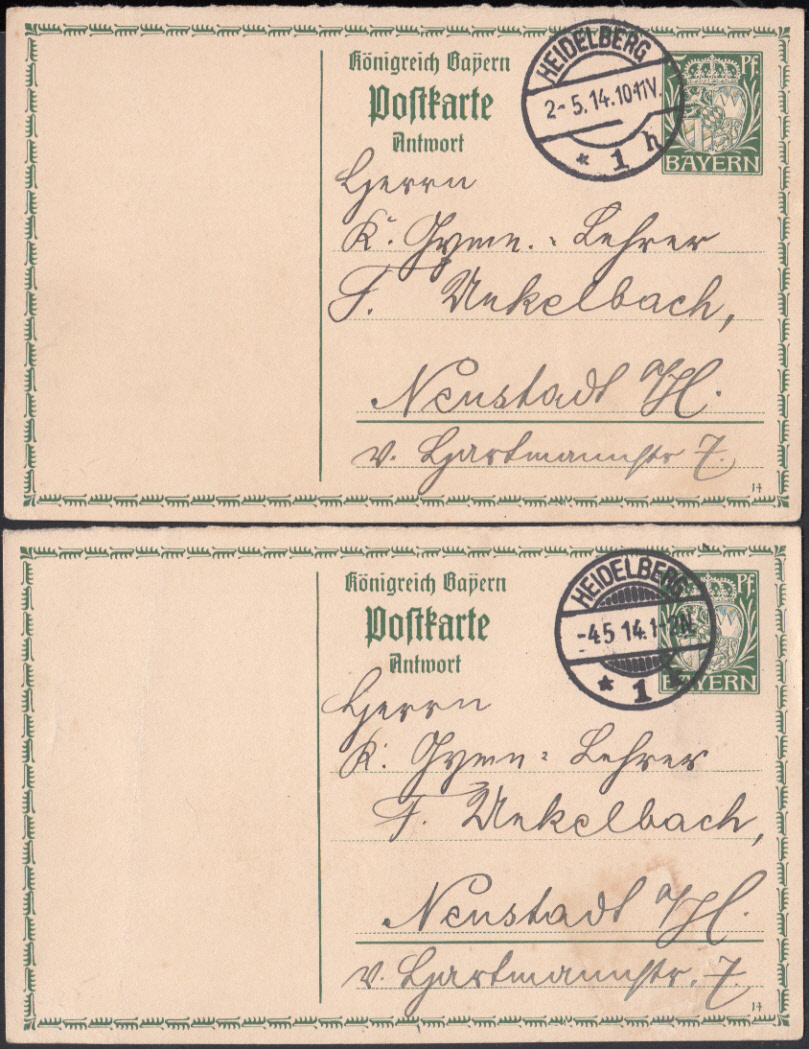 Königreich Bayern
Postkarte
Antwort
HEIDELBERG
2.-5.14.10-11V.
* 1 h
5 Pf.
BAYERN
Herrn
K. Gymn.-Lehrer
F. Unkelbach,
Neustadt a/H.
v. Hartmannstr 7.
14
Königreich Bayern
Postkarte
Antwort
HEIDELBERG
-4.5.14.1-2N
* 1
Pf.
BAYERN
Herrn
K. Gymn.-Lehrer
F. Unkelbach,
Neustadt a/H.
v. Hartmannstr. 7.
14